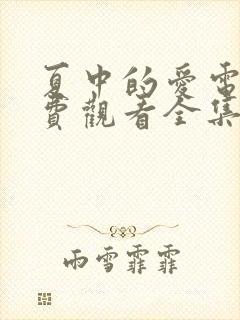 夏中的愛電
費觀看全集
雨雪霏霏